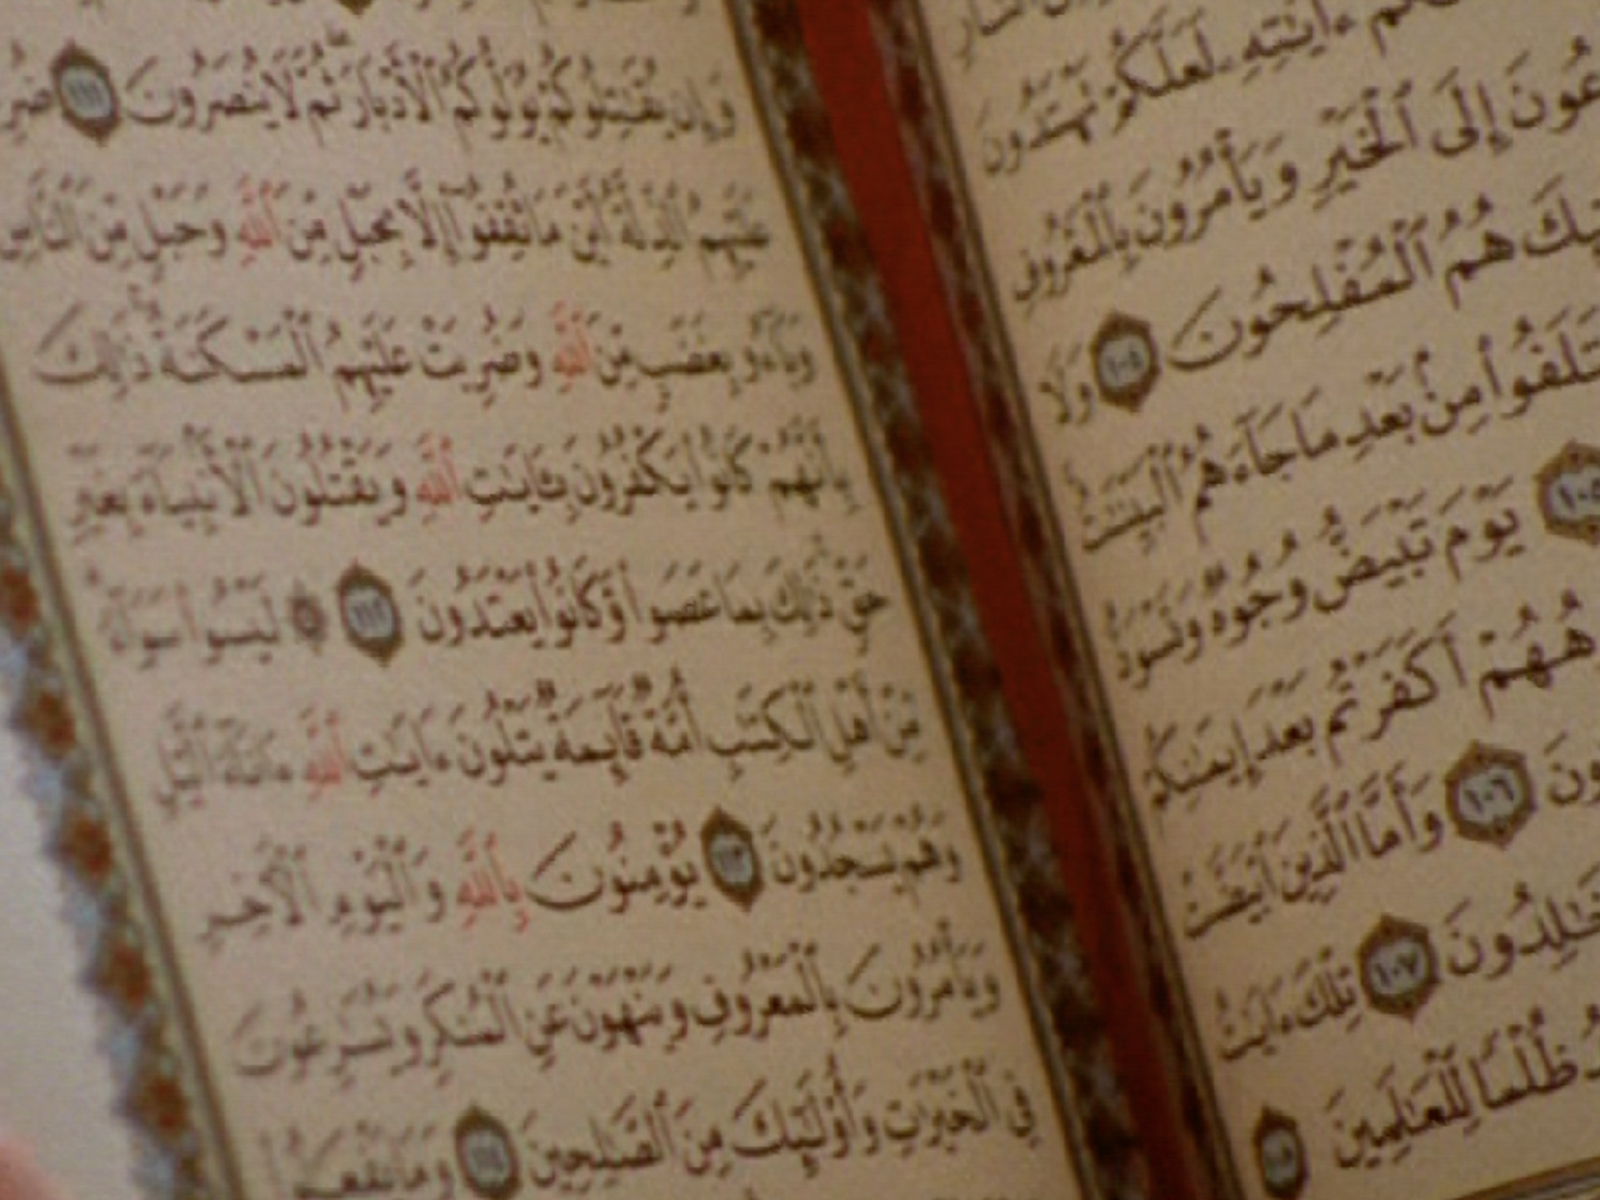 ءَايَٰتِهِۦ لَعَلَّكُمْ تَهْتَدُونَ
عُونَ إِلَى ٱلْخَيْرِ وَيَأْمُرُونَ بِٱلْمَعْرُوفِ
هُمُ ٱلْمُفْلِحُونَ ١٠٤ وَلَا
مِنۢ بَعْدِ مَا جَآءَهُمُ ٱلْبَيِّنَٰتُ
١٠٥ يَوْمَ تَبْيَضُّ وُجُوهٌ وَتَسْوَدُّ
أَكَفَرْتُم بَعْدَ إِيمَٰنِكُمْ
ونَ ١٠٦ وَأَمَّا ٱلَّذِينَ ٱبْيَضَّتْ
خَٰلِدُونَ ١٠٧ تِلْكَ ءَايَٰتُ
ظُلْمًا لِّلْعَٰلَمِينَ ١٠٨
وَإِن يُقَٰتِلُوكُمْ يُوَلُّوكُمُ ٱلْأَدْبَارَ ثُمَّ لَا يُنصَرُونَ ١١١ ضُرِ
عَلَيْهِمُ ٱلذِّلَّةُ أَيْنَ مَا ثُقِفُوٓا۟ إِلَّا بِحَبْلٍ مِّنَ ٱللَّهِ وَحَبْلٍ مِّنَ ٱلنَّاسِ
وَبَآءُو بِغَضَبٍ مِّنَ ٱللَّهِ وَضُرِبَتْ عَلَيْهِمُ ٱلْمَسْكَنَةُ ذَٰلِكَ
بِأَنَّهُمْ كَانُوا۟ يَكْفُرُونَ بِـَٔايَٰتِ ٱللَّهِ وَيَقْتُلُونَ ٱلْأَنۢبِيَآءَ بِغَيْرِ
حَقٍّ ذَٰلِكَ بِمَا عَصَوا۟ وَّكَانُوا۟ يَعْتَدُونَ ١١٢ ۞ لَيْسُوا۟ سَوَآءً
مِّنْ أَهْلِ ٱلْكِتَٰبِ أُمَّةٌ قَآئِمَةٌ يَتْلُونَ ءَايَٰتِ ٱللَّهِ ءَانَآءَ ٱلَّيْلِ
وَهُمْ يَسْجُدُونَ ١١٣ يُؤْمِنُونَ بِٱللَّهِ وَٱلْيَوْمِ ٱلْأَخِرِ
وَيَأْمُرُونَ بِٱلْمَعْرُوفِ وَيَنْهَوْنَ عَنِ ٱلْمُنكَرِ وَيُسَٰرِعُونَ
فِى ٱلْخَيْرَٰتِ وَأُو۟لَٰٓئِكَ مِنَ ٱلصَّٰلِحِينَ ١١٤ وَمَا يَفْعَلُوا۟